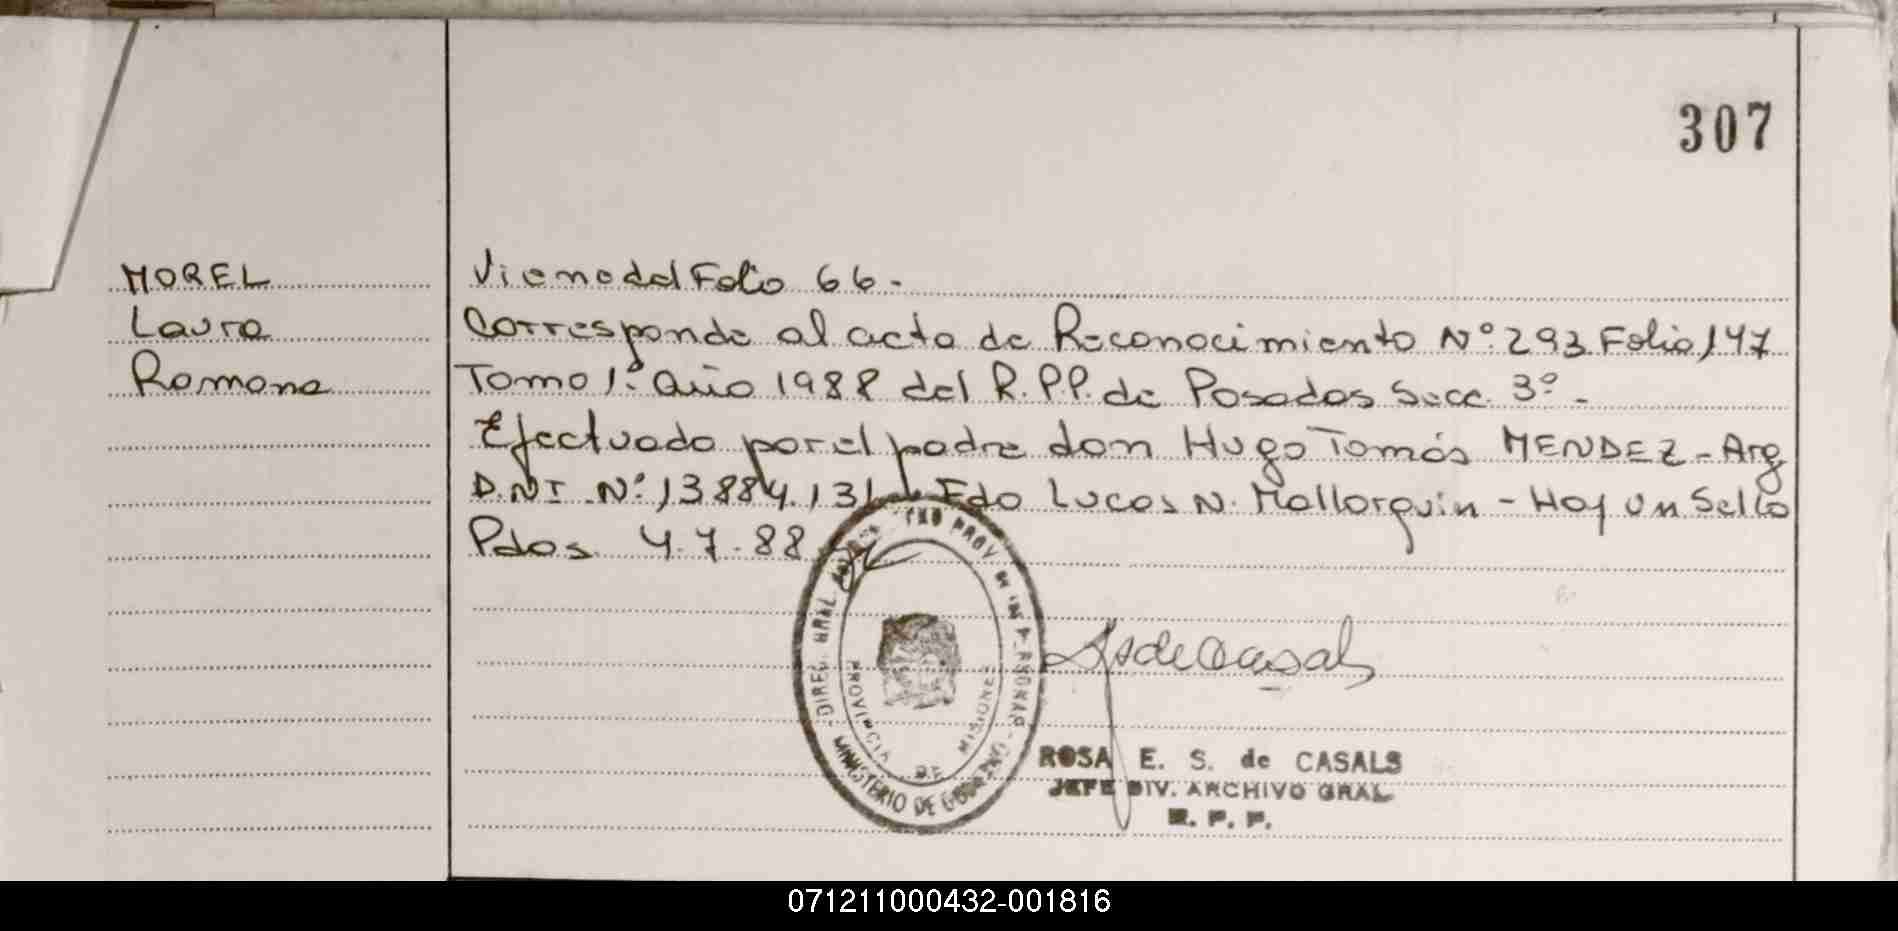 307
MOREL
Laura
Romona
Viene del Folio 66.-
Corresponde al acta de Reconocimiento Nº 293 Folio 147
Tomo 1º Año 1988 del R.P.P. de Posadas Secc. 3º -
Efectuado por el padre don Hugo Tomás MENDEZ - Arg
D.N.I. Nº 13.884.131 Fdo Lucas N. Mallorquin - Hay un Sello
Pdas. 4.7.88
DIREC. GRAL. PROV. DE LAS PERSONAS
MINISTERIO DE GOBIERNO
PROVINCIA DE MISIONES
ROSA E. S. de CASALS
JEFE DIV. ARCHIVO GRAL
R. P. P.
071211000432-001816